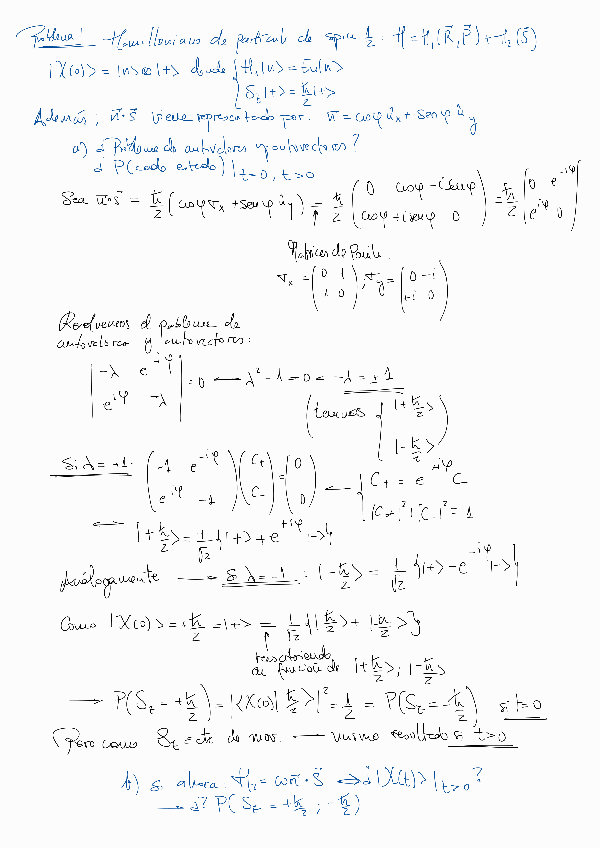 Problema: Hamiltoniano de partícula de spin 1/2 : H = H₁(R⃗, P⃗) + H₂(S⃗)
|X(0)> = |n>⊗|+> donde { H₁|n> = En|n>
S_z|+> = ħ/2 |+>
Además; n⃗·s⃗ viene representado por: n⃗ = cosφ û_x + senφ û_y
a) ¿Problema de autovalores y autovectores?
¿P(cada estado)|t=0, t>0
Sea n⃗·s⃗ = ħ/2 (cosφ σ_x + senφ û_y) = ħ/2 (0 cosφ - i senφ / cosφ + i senφ 0) = ħ/2 (0 e^{-iφ} / e^{iφ} 0)
Matrices de Pauli.
σ_x = (0 1 / 1 0), σ_y = (0 -i / +i 0)
Resolvemos el problema de
autovalores y autovectores:
|-λ e^{-iφ} / e^{iφ} -λ| = 0 ← λ² - 1 = 0 ← λ = ±1
(tenemos { |+ħ/2>
|-ħ/2> )
Si λ = +1 (-1 e^{-iφ} / e^{iφ} -1)(C+ / C-) = (0 / 0) ← { C+ = e^{-iφ} C-
|C+|² + |C-|² = 1
← |+ħ/2> = 1/√2 {|+> + e^{+iφ} |->}
Análogamente → si λ = -1 : |-ħ/2> = 1/√2 {|+> - e^{-iφ} |->}
Como |X(0)> = +ħ/2 = |+> = 1/√2 {|ħ/2> + |-ħ/2>}
en función de |+ħ/2>; |-ħ/2>
→ P(S_z = +ħ/2) = |<X(0)|ħ/2>|² = 1/2 = P(S_z = -ħ/2) si t=0
Pero como S_z = cte de mov. → mismo resultado si t>0
b) si ahora H₂ = ω n⃗·S⃗ ⇒ ¿|X(t)>|t>0?
→ ¿? P(S_z = +ħ/2 ; -ħ/2)